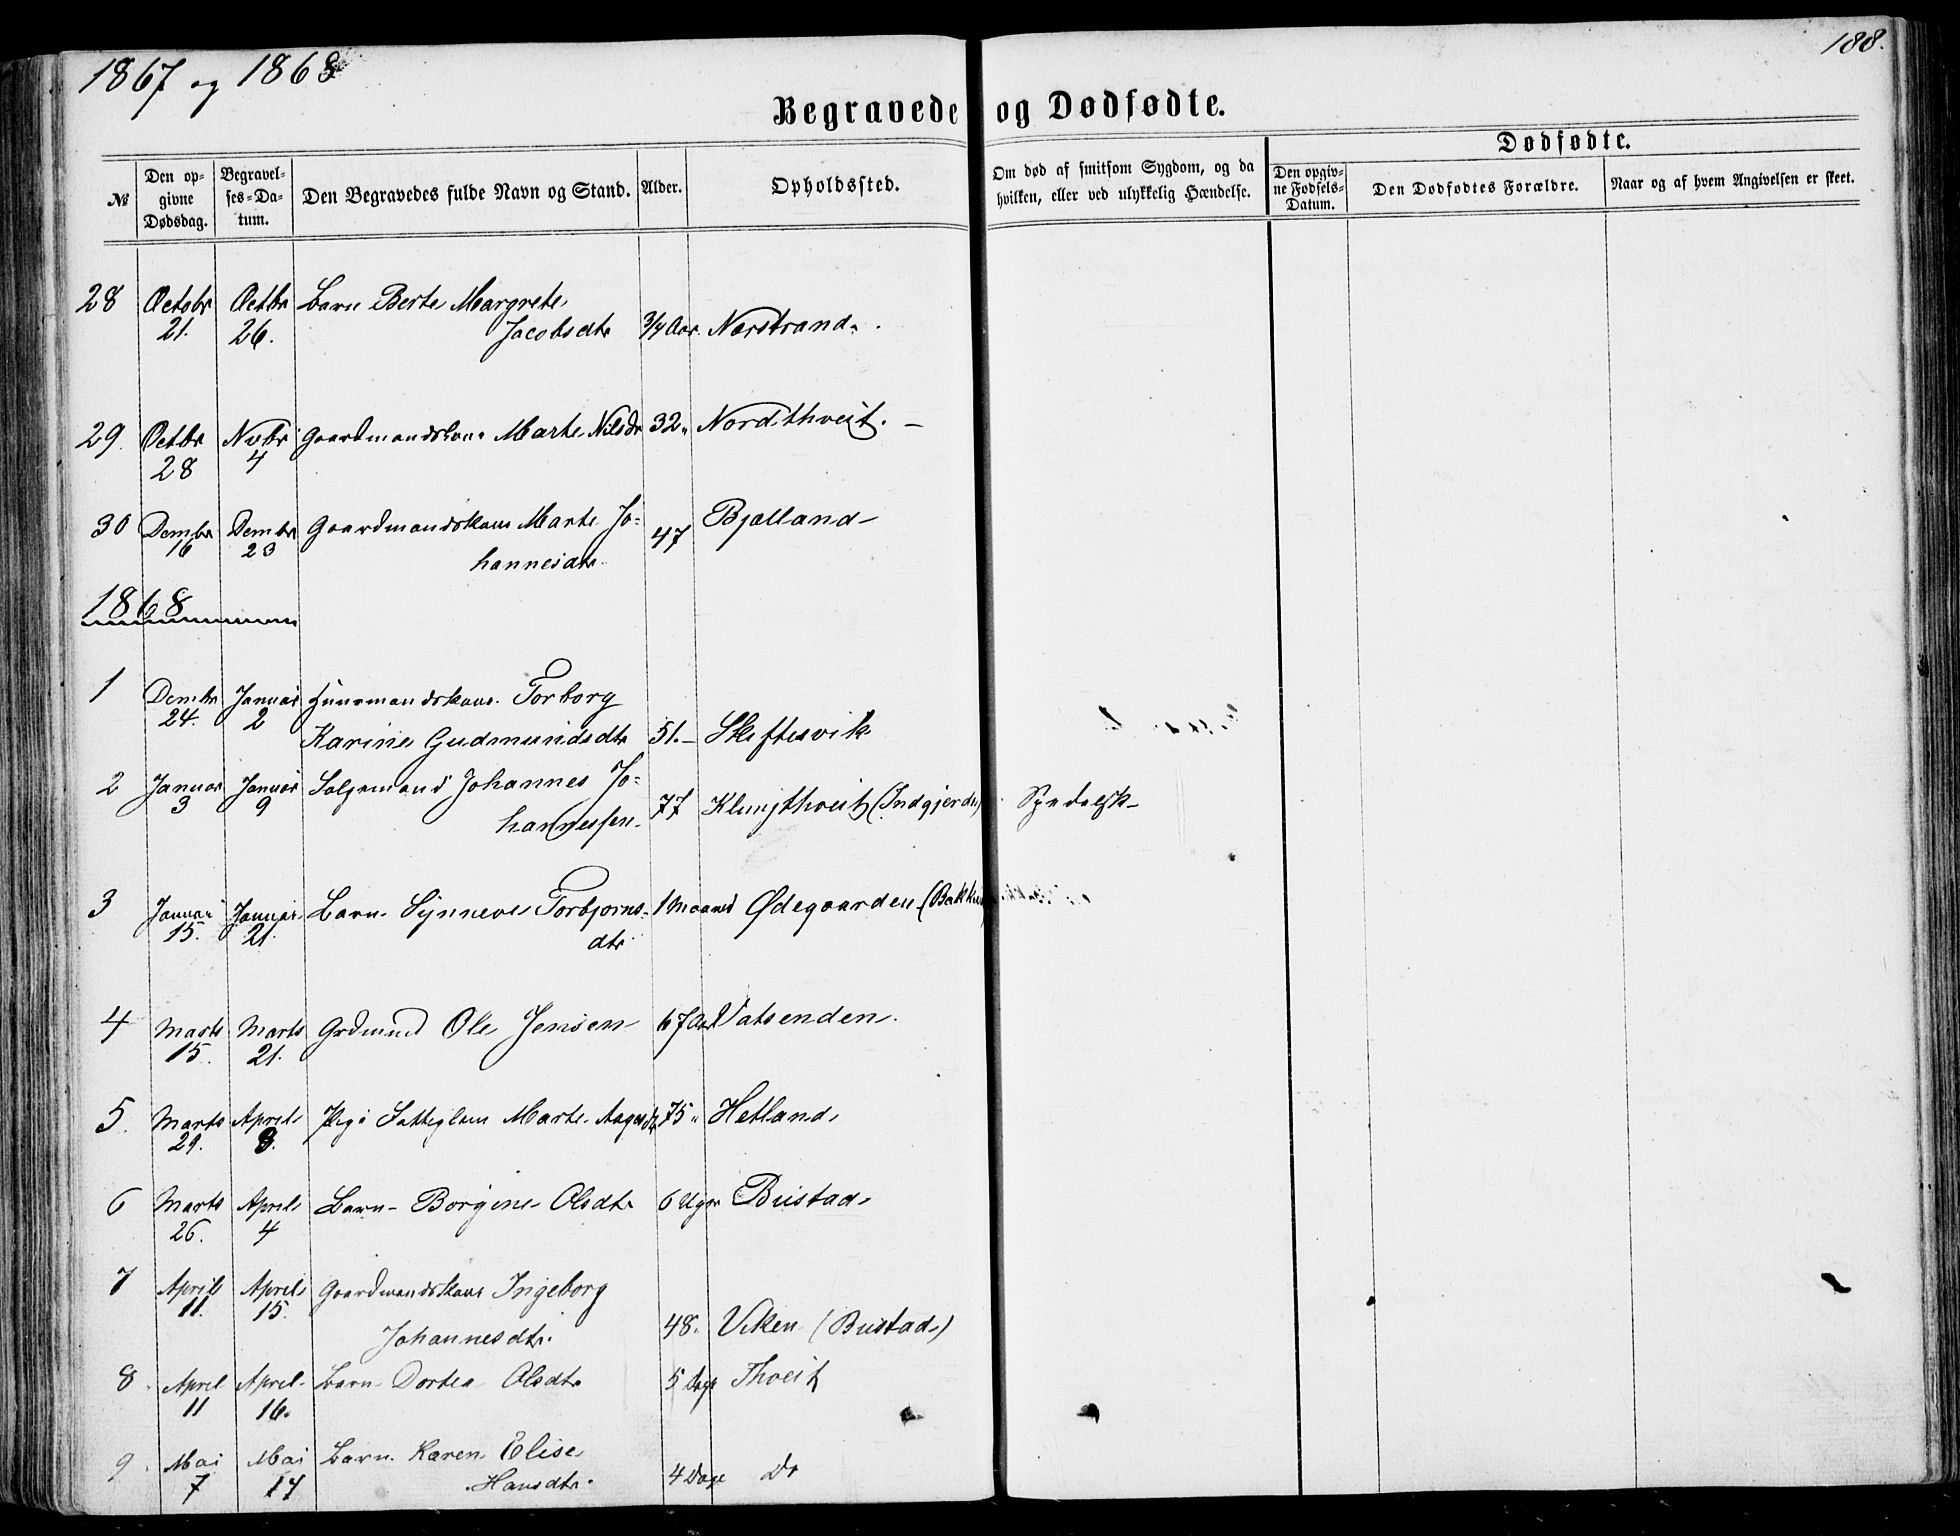 1867 og 1868
188.
Begravede og Dødfødte.
Dødfødte.
№
Den opgivne Dødsdag.
Begravelses-Datum.
Den Begravedes fulde Navn og Stand.
Alder.
Opholdssted.
Om død af smitsom Sygdom, og da hvilken, eller ved ulykkelig Hændelse.
Den opgivne Fødsels-Datum.
Den Dødfødtes Forældre.
Naar og af hvem Angivelsen er skeet.
28 Octobr Octbr Barn Berte Margrete
21. 26. Jacobsdtr 3/4 Aar. Norstrand.
29. Octbr Nvbr Gaardmandskone Marte Nilsdr 32 Nordthveit.
28 4
30 Dembr Dembr Gaardmandskone Marte Jo- 47 Bjælland
16 23 hannesdtr
1868
1 Dembr Januar Huusmandskone Torborg
24. 2 Karine Gudmundsdtr 51. Skeftesvik
2 Januar Januar Johannes Jo-
3 9 hannessen 77 (Indgjerde)
3 Januar Januar Barn Synneve Torbjørns- 1 Maaned Ødegaarden
15. 21. dtr
4 Marts Marts Grdmand Ole Jensen 67 Aar Vatsenden.
15. 21.
5. Marts April Marte 75 Hetland
29. 8.
6 Marts April Barn Borgine Olsdtr 6 Uger Bustad
26. 4
7 April April Gaardmandskone Ingeborg
11. 15. Johannesdtr. 48. Viken (Bustad)
8. April April Barn Dortea Olsdtr 5 Dage Thveit
11 16.
9. Mai Mai Barn Karen Elise
7 14 Hansdtr. 4 Dage Do